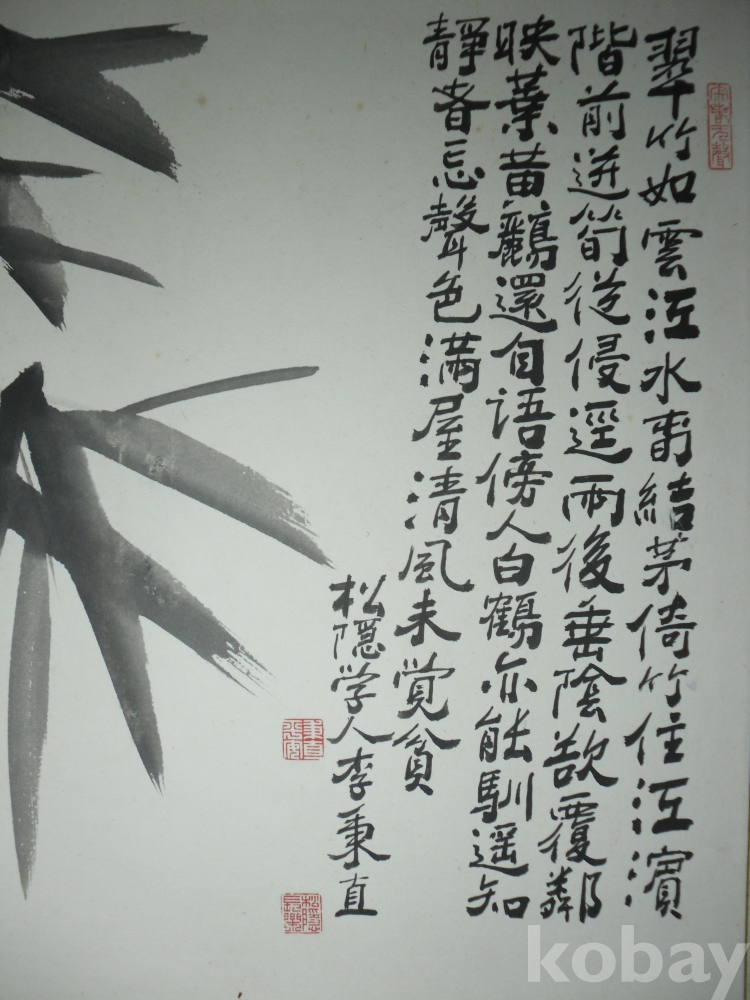 翠竹如雲江水春結茅倚竹住江濱
階前迸筍從侵逕雨後垂陰欲覆鄰
映葉黃鸝還自语傍人白鶴亦能馴遥知
靜者忘聲色滿屋清風未覚貧
松隱学人李秉直
kobay